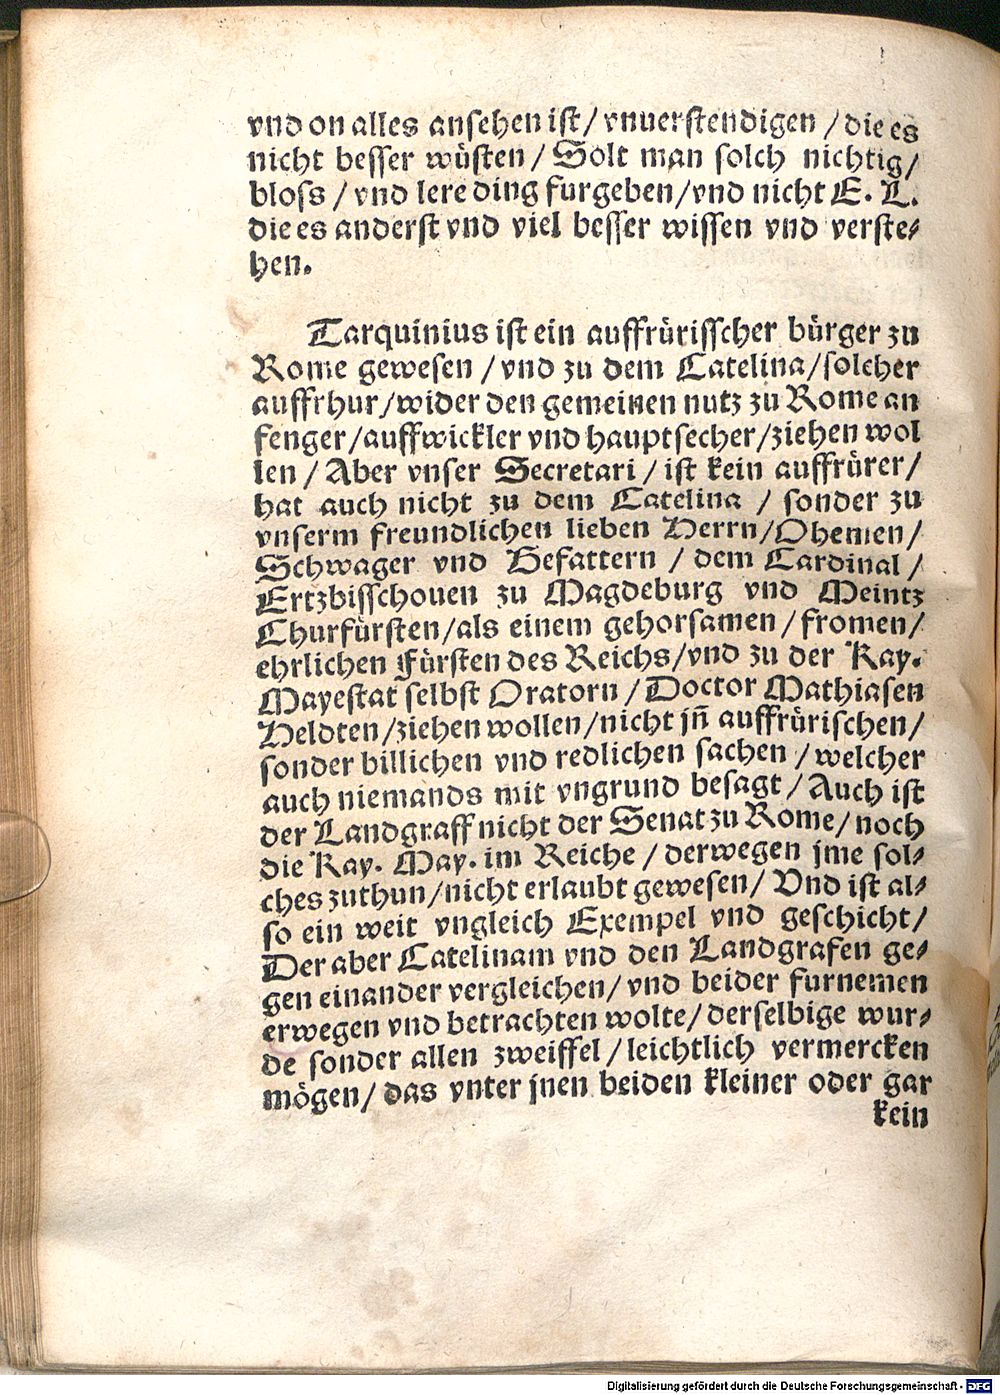 vnd on alles ansehen ist / vnuerstendigen / die es
nicht besser wüsten / Solt man solch nichtig /
bloss / vnd lere ding furgeben / vnd nicht E. L.
die es anderst vnd viel besser wissen vnd verste-
hen.
Tarquinius ist ein auffrürisscher bürger zu
Rome gewesen / vnd zu dem Catelina / solcher
auffrhur / wider den gemeinen nutz zu Rome an
fenger / auffwickler vnd hauptsecher / ziehen wol
len / Aber vnser Secretari / ist kein auffrürer /
hat auch nicht zu dem Catelina / sonder zu
vnserm freundlichen lieben Herrn / Ohemen /
Schwager vnd Gefattern / dem Cardinal /
Ertzbisschouen zu Magdeburg vnd Meintz
Churfürsten / als einem gehorsamen / fromen /
ehrlichen Fürsten des Reichs / vnd zu der Kay.
Mayestat selbst Oratorn / Doctor Mathiasen
Heldten / ziehen wollen / nicht jñ auffrürischen /
sonder billichen vnd redlichen sachen / welcher
auch niemands mit vngrund besagt / Auch ist
der Landgraff nicht der Senat zu Rome / noch
die Kay. May. im Reiche / derwegen jme sol-
ches zuthun / nicht erlaubt gewesen / Vnd ist al-
so ein weit vngleich Exempel vnd geschicht /
Der aber Catelinam vnd den Landgrafen ge-
gen einander vergleichen / vnd beider furnemen
erwegen vnd betrachten wolte / derselbige wur-
de sonder allen zweiffel / leichtlich vermercken
mögen / das vnter jnen beiden kleiner oder gar
kein
Digitalisierung gefördert durch die Deutsche Forschungsgemeinschaft - DFG